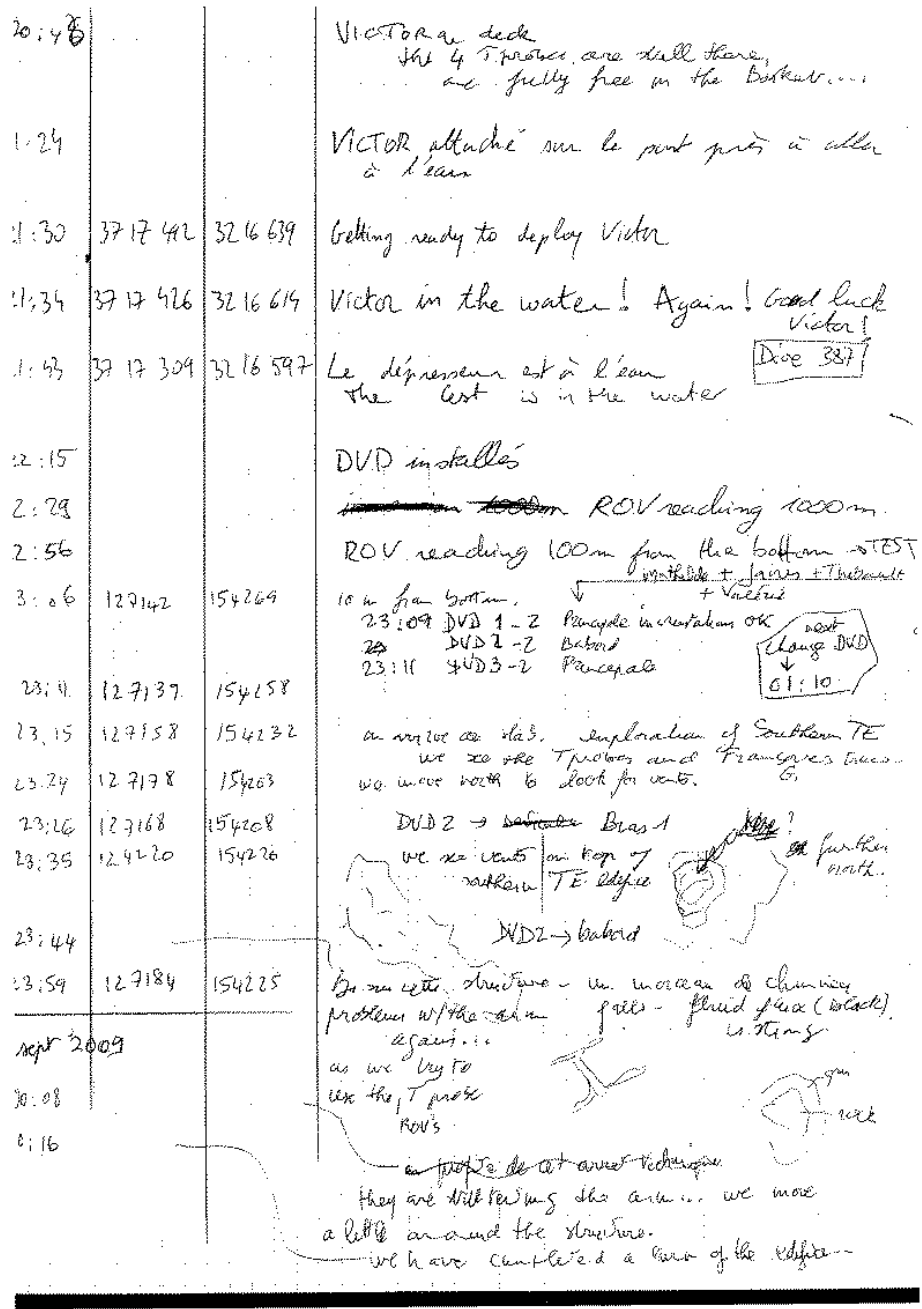 20:48 VICTOR on deck
the 4 T probes are still there,
and fully free in the Basket....
1:24 VICTOR attaché sur le pont près à aller
à l'eau
21:30 37 17 492 32 16 639 Getting ready to deploy Victor
21:34 37 17 426 32 16 614 Victor in the water! Again! Good luck
Victor!
1:53 37 17 309 32 16 597 Le dépresseur est à l'eau
Dive 387
the lest is in the water
22:15 DVD installés
2:29 ROV reaching 1000m.
2:56 ROV reaching 100m from the bottom → TEST
Mathilde + + Thibault
+ Valérie
3:06 127142 154269 10 m from bottom.
23:09 DVD 1-2 Principale incrustations OK
DVD2-2 Babord
23:11 DVD3-2 Principale
next
change DVD
↓
01:10
23:11 127139 154258
23:15 127158 154232 on arrive au exploration of Southern TE
we see the T probes and
23:24 127178 154203 we move north to look for vents.
23:26 127168 154208 DVD2 → Bras 1
?
23:35 127220 154226 we see vents on top of
southern TE edifice
further
north.
23:44 DVD2 → babord
23:59 127184 154225 sur cette structure - un morceau de cheminée
problems w/the arm falls - fluid flux (black)
again... is strong.
sept 2009
as we try to
00:08 use the T probe
ROV's
0:16
a propos de cet arret technique
they are still testing the arm... we move
a little around the structure.
we have completed a turn of the edifice--